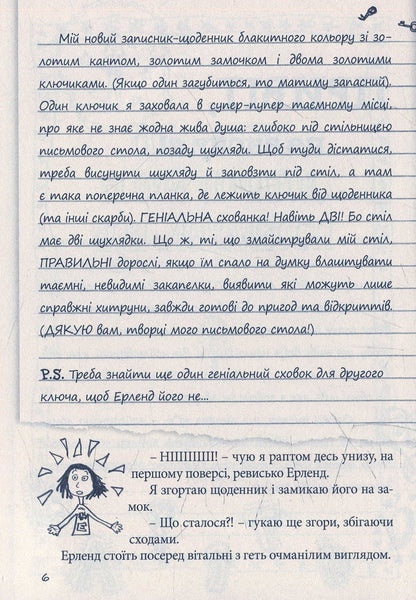 Мій новий записник-щоденник блакитного кольору зі зо-
лотим кантом, золотим замочком і двома золотими
ключиками. (Якщо один загубиться, то матиму запасний).
Один ключик я заховала в супер-пупер таємному місці,
про яке не знає жодна жива душа: глибоко під стільницею
письмового стола, позаду шухляди. Щоб туди дістатися,
треба висунути шухляду й заповзти під стіл, а там
є така поперечна планка, де лежить ключик від щоденника
(та інші скарби). ГЕНІАЛЬНА схованка! Навіть ДВІ! Бо стіл
має дві шухлядки. Що ж, ті, що змайстрували мій стіл,
ПРАВИЛЬНІ дорослі, якщо їм спало на думку влаштувати
таємні, невидимі закапелки, виявити які можуть лише
справжні хитруни, завжди готові до пригод та відкриттів.
(ДЯКУЮ вам, творці мого письмового стола!)
P.S. Треба знайти ще один геніальний сховок для другого
ключа, щоб Ерленд його не...
– НІІІІІІІІІ! – чую я раптом десь унизу, на
першому поверсі, ревисько Ерленд.
Я згортаю щоденник і замикаю його на за-
мок.
– Що сталося?! – гукаю ще згори, збігаючи
сходами.
Ерленд стоїть посеред вітальні з геть очманілим виглядом.
6